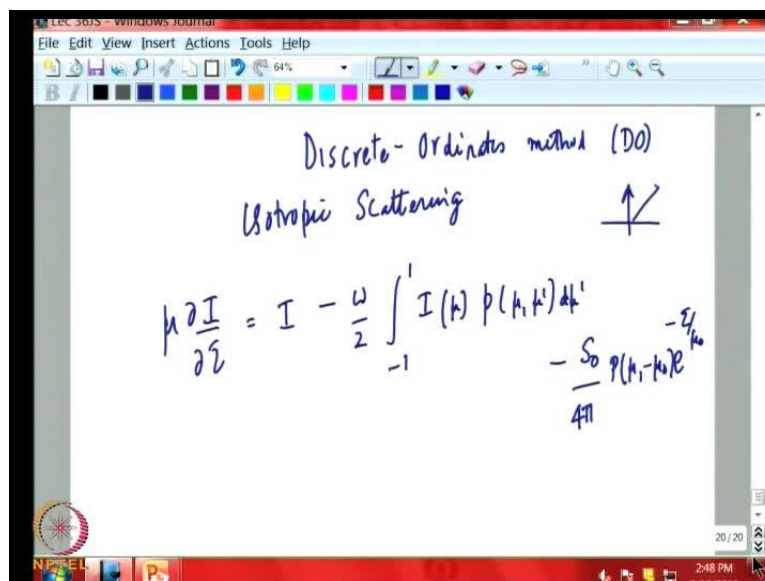 Lec 36JS - Windows Journal
File Edit View Insert Actions Tools Help
64%
B I
Discrete-Ordinates method (DO)
Isotropic Scattering
μ ∂I/∂τ = I - ω/2 ∫_{-1}^{1} I(μ) p(μ, μ') dμ'
- S₀/4π P(μ, -μ₀) e^{-τ/μ₀}
20 / 20
NPTEL
2:48 PM